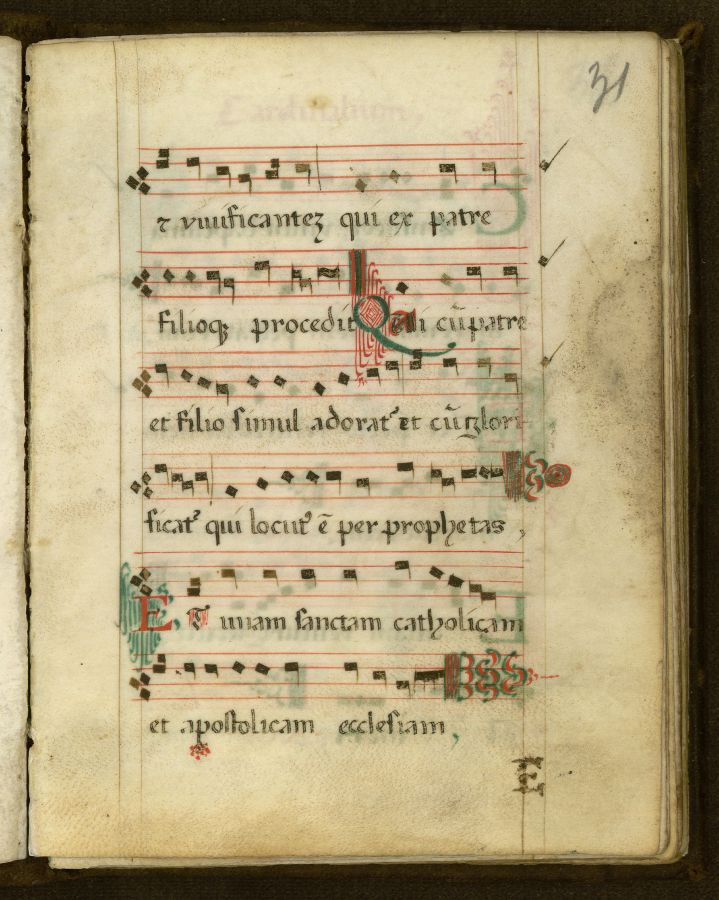 31
⁊ viuificanteʒ qui ex patre
filioqꝫ procedit Qui cū patre
et filio simul adorat᷒ et cū glori
ficat᷒ qui locut᷒ ē per prophetas,
Et unam sanctam catholicam
et apostolicam ecclesiam,